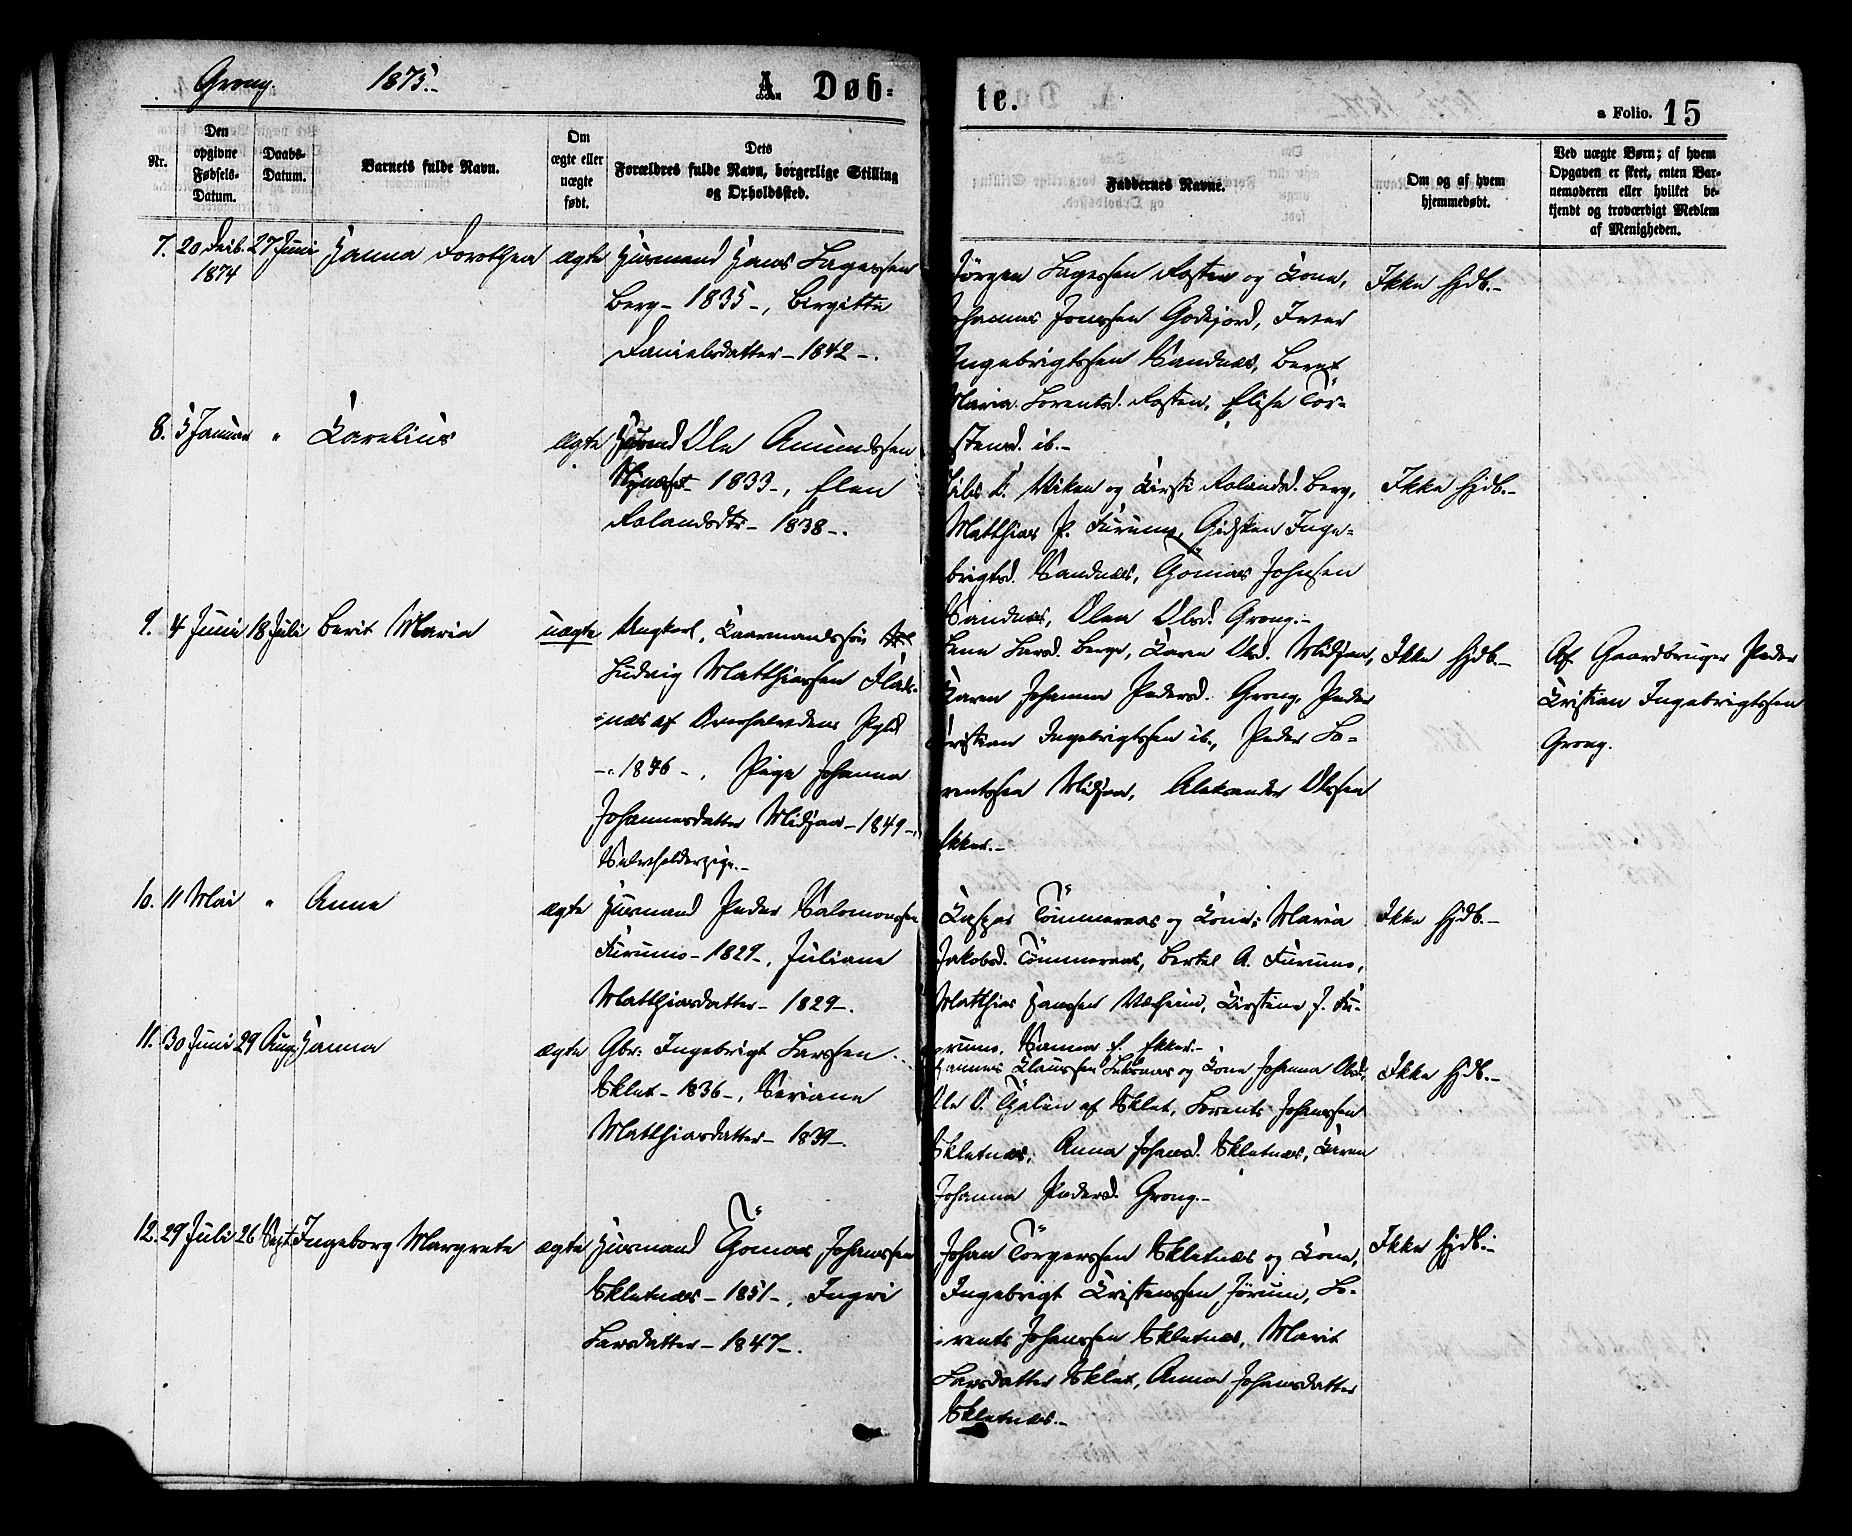 Grong. 1875.- A. Døb-
te.
a Folio. 15
Nr.
Den opgivne Fødsels-Datum.
Daabs-Datum.
Barnets fulde Navn.
Om ægte eller uægte født.
Dets Forældres fulde Navn, borgerlige Stilling og Opholdssted.
Faddernes Navne.
Om og af hvem hjemmedøbt.
Ved uægte Børn; af hvem Opgaven er skeet, enten Barnemoderen eller hvilket bekjendt og troværdigt Medlem af Menigheden.
7. 20 Decb. 1874 27 Juni Hanna Dorothea ægte Husmand Hans Lagessen
Berg - 1835 -, Birgitte
Danielsdatter - 1842 -.
Jørgen Lagessen Rosten og Kone,
Johannes Jonssen Godejord, Iver
Ingebrigtssen Sandnæs, Beret
Maria Lorentsd. Rosten, Elise Tor-
stensd. ib.-
Ikke hjdb.-
8. 5 Januar " Karelius ægte Husmd Ole Amundssen
- 1833 -, Elen
Rolandsdtr - 1838 -.
Nils D. Viken og Kirsti Rolandsd. Berg,
Matthias P. Furumo, Gidsken Inge-
brigtsd. Sandnæs, Gomas Johnsen
Sandnæs, Olea Olsd. Grong.-
Ikke hjdb.-
9. 4 Juni 18 Juli Berit Maria uægte Ungkarl, Kaarmandssøn
Ludvig Matthiassen Flak-
næs af Overhaldens Pgld
- 1846 -. Pige Johanna
Johannesdatter Midjoen - 1849 -,
Selvholderpige.-
Lena Larsd. Berge, Karen Olsd. Midjoen,
Karen Johanna Pedersd. Grong, Peder
Kristian Ingebrigtssen ib., Peder Lo-
rentssen Midjoen, Aleksander Olssen
Ekker.-
Ikke hjdb.-
Af Gaardbruger Peder
Kristian Ingebrigtssen
Grong.
10. 11 Mai " Anne ægte Husmand Peder Salomonssen
Furumo - 1829 -, Juliane
Matthiasdatter - 1829 -.
Kasper Tømmeraas og Kone Maria
Jakobsd. Tømmeraas, Bertel A. Furumo,
Matthias Hanssen Veheim, Kirstine J. Fu-
rumo, Sanna E. Ekker.-
Ikke hjdb.-
11. 30 Juni 29 Aug. Hanna ægte Gbr: Ingebrigt Larssen
Sklet - 1836 -, Seriane
Matthiasdatter - 1839 -.
Hannes Klaussen Leksnæs og Kone Johanna Olsd.
Ole O. Gølin af Sklet, Lorents Johanssen
Skletnæs, Anna Johansd. Skletnæs, Karen
Johanna Pedersd. Grong.-
Ikke hjdb.-
12. 29 Juli 26 Sept. Ingeborg Margrete ægte Husmand Gomas Johanssen
Skletnæs - 1851 -, Ingri
Larsdatter - 1847 -.
Johan Torgerssen Skletnæs og Kone,
Ingebrigt Kristenssen Jørum, Lo-
rents Johanssen Skletnæs, Marit
Larsdatter Sklet, Anna Johansdatter
Skletnæs.-
Ikke hjdb.-